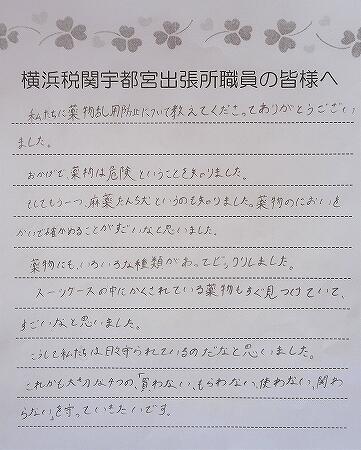 横浜税関宇都宮出張所職員の皆様へ
私たちに薬物乱用防止について教えてくださってありがとうござい
ました。
おかげで、薬物は危険ということを知りました。
そしてもう一つ、麻薬たんち犬というのも知りました。薬物のにおいを
かいで確かめることがすごいなと思いました。
薬物にも、いろいろな種類があってビックリしました。
スーツケースの中にかくされている薬物もすぐ見つけていて、
すごいなと思いました。
こうして私たちは日々守られているのだなと思いました。
これからも大切な4つの、「買わない、もらわない、使わない、関わ
らない」を守っていきたいです。